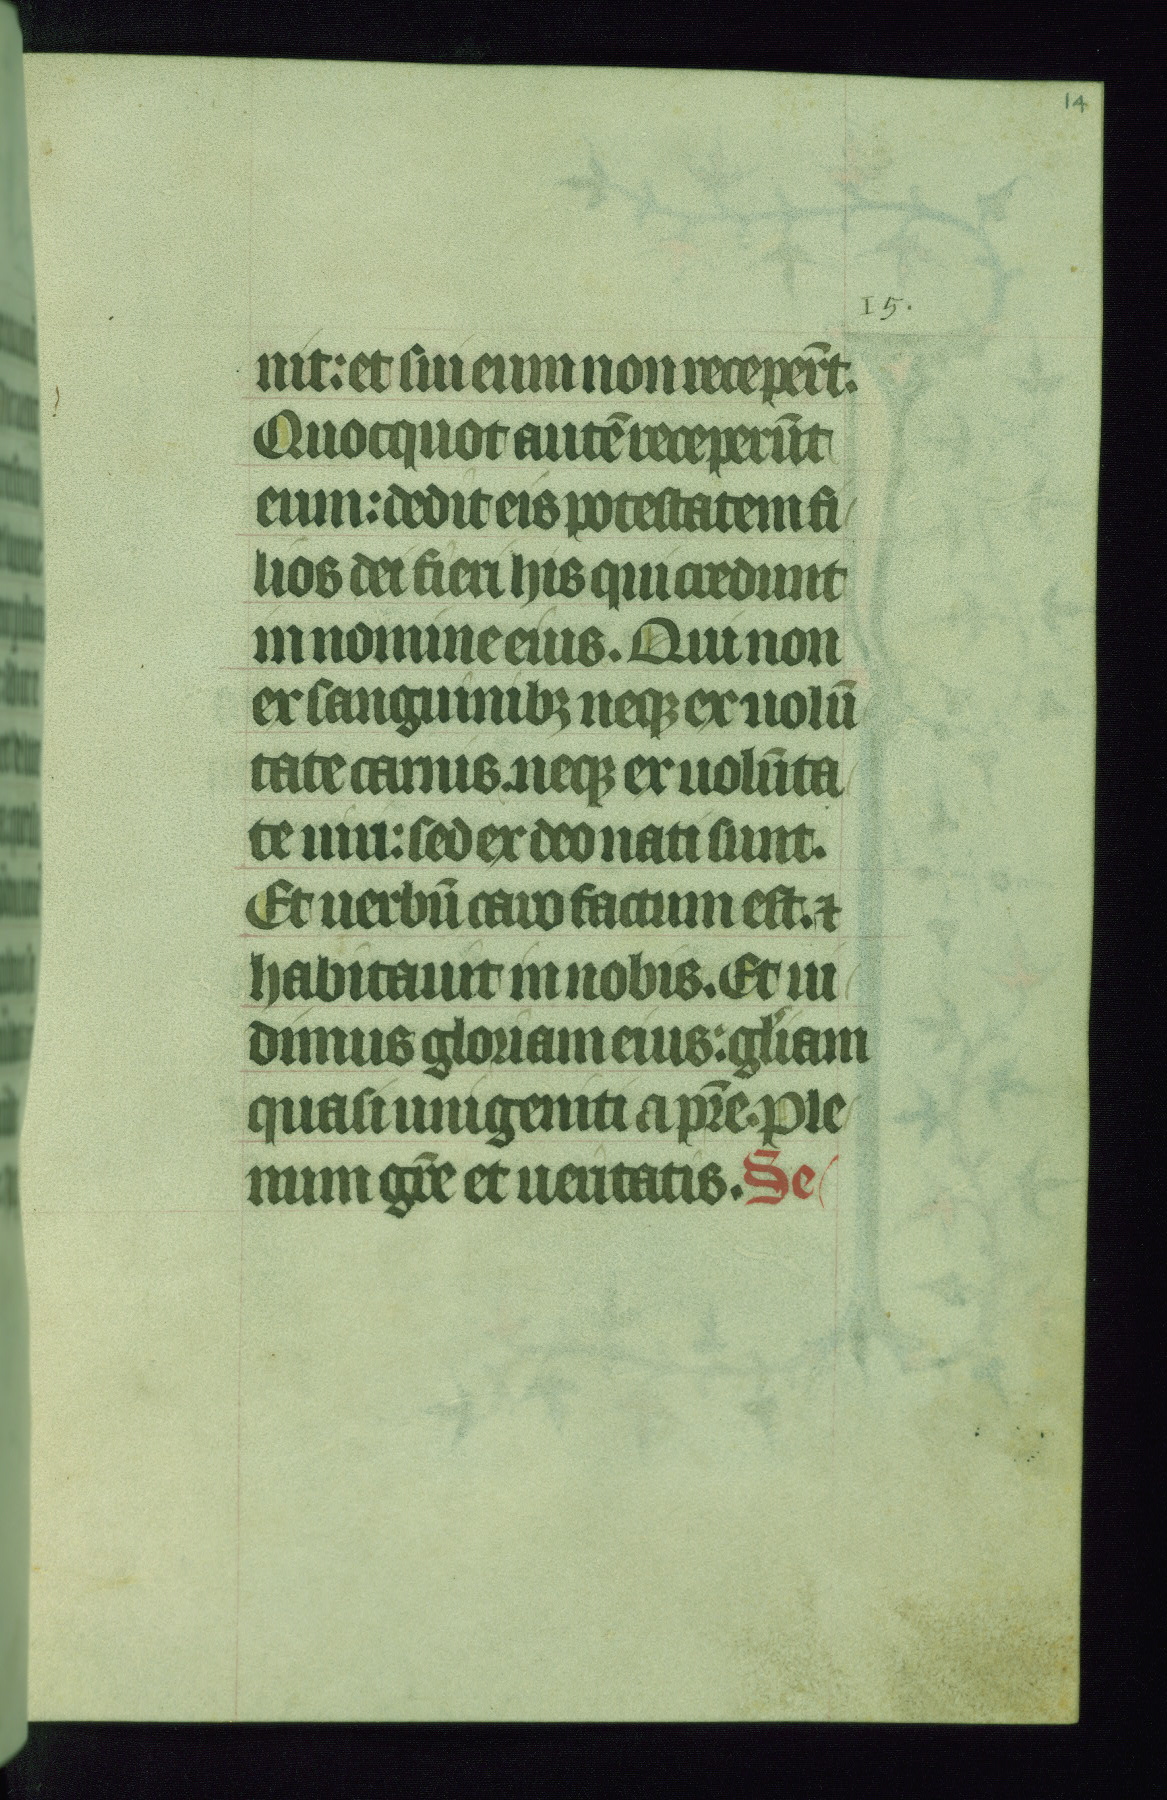 14
15.
nit: et sui eum non recepēr̄t.
Quotquot autē receperūt
eum: dedit eis potestatem fi
lios dei fieri his qui credunt
in nomine eius. Qui non
ex sanguinibꝫ neqꝫ ex uolū
tate carnis. neqꝫ ex uolūta
te uiri: sed ex deo nati sunt.
Et uerbū caro factum est. ⁊
habitauit in nobis. Et ui
dimus gloriam eius: gl'iam
quasi unigeniti a pr̄e. Ple
num gr̄e et ueritatis. Se